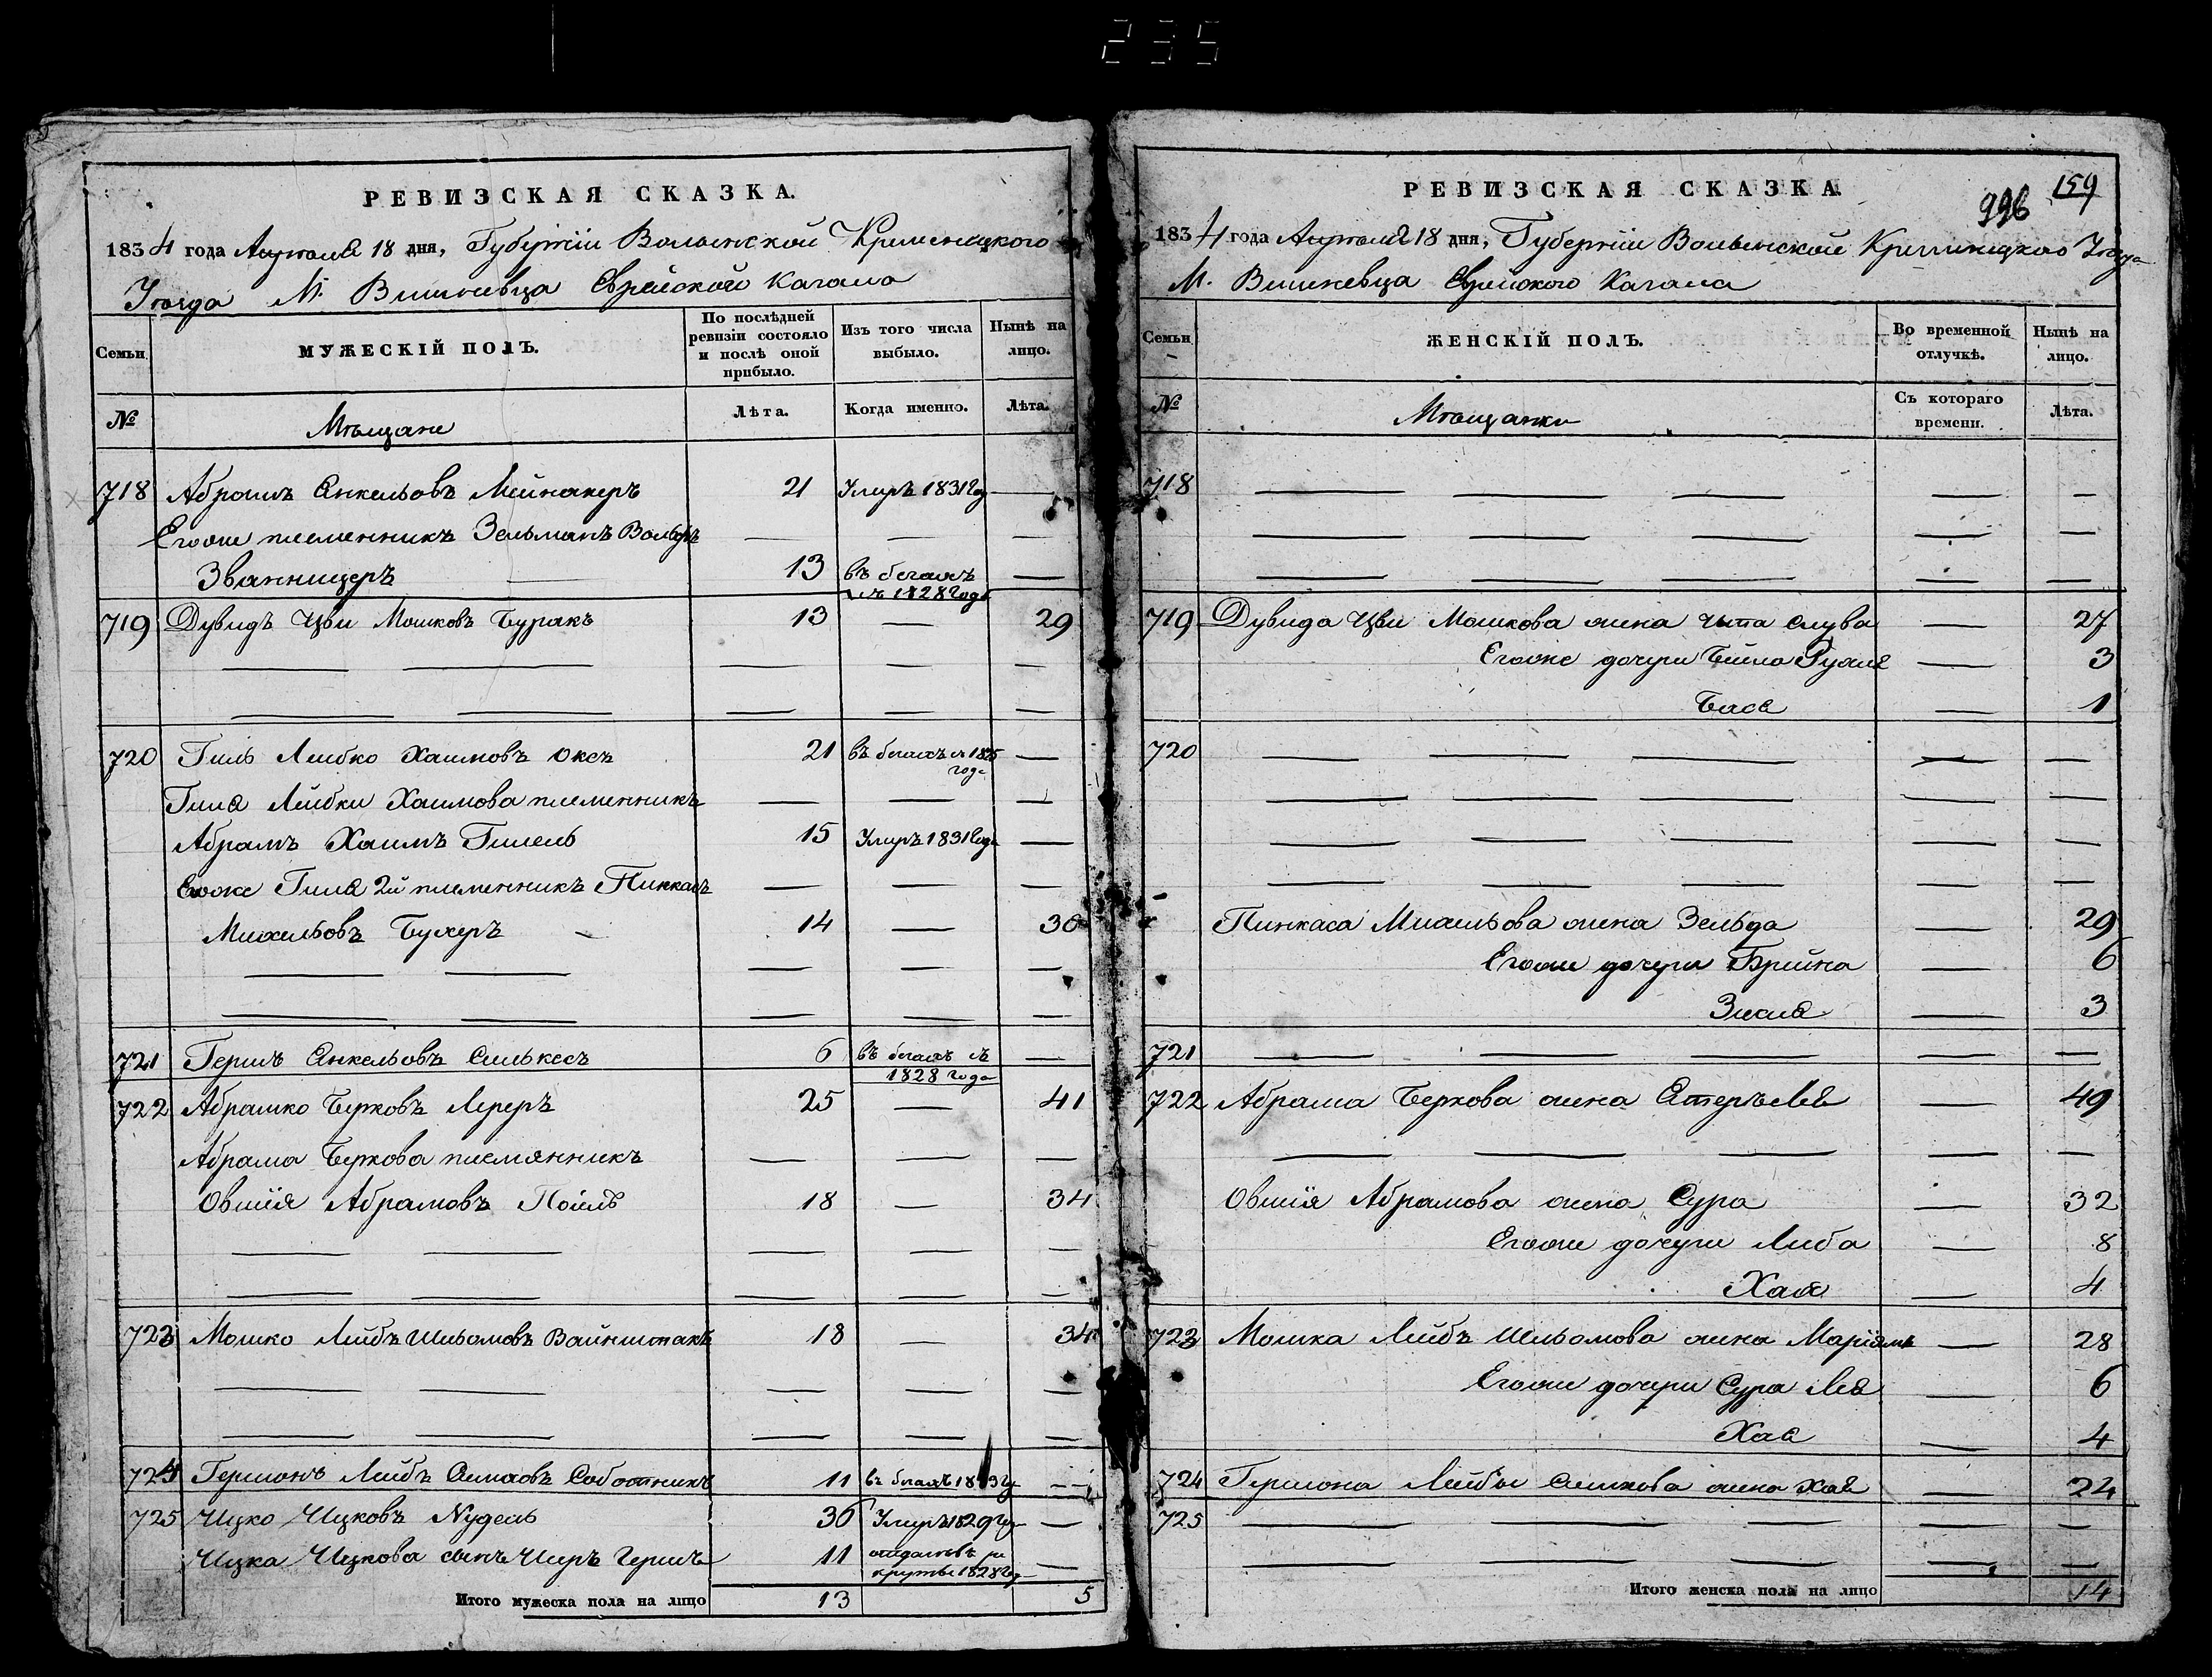 235
РЕВИЗСКАЯ СКАЗКА.
1834 года Апреля 18 дня, Губерніи Волынской Кременецкого
Уезда М. Вишневца Еврейского Кагала
Семьи
МУЖЕСКІЙ ПОЛЪ.
По послѣдней ревизіи состояло и послѣ оной прибыло.
Изъ того числа выбыло.
Нынѣ на лицо.
№
Мѣщане
Лѣта.
Когда именно.
Лѣта.
718 Абрамъ Янкельовъ Мейнакеръ 21 Умеръ 1831 год —
Егоже племенникъ Зельманъ Вольфъ — — —
Званницеръ — 13 въ бегахъ съ 1828 года —
719 Дувидъ Цви Мошковъ Буракъ 13 — 29
720 Гиль Лейбко Хаимовъ Оксъ 21 въ бегахъ съ 1825 года —
Гиля Лейбки Хаимова племенникъ — — —
Абрамъ Хаимъ Гилель 15 Умеръ 1831 года —
Егоже Гиля 2й племенникъ Пинкасъ — — —
Михельовъ Бухеръ — 14 — 30
721 Гершъ Янкельовъ Силькесъ 6 въ бегахъ съ 1828 года —
722 Абрашко Берковъ Лереръ 25 — 41
Абрама Беркова племянникъ — — —
Овшія Абрамовъ Поіель 18 — 34
723 Мошко Лейбъ Шльомовъ Вайнштокъ 18 — 34
724 Гершонъ Лейбъ Симховъ Соботникъ 11 въ бегахъ —
725 Ицко Ицковъ Нудель 36 Умеръ 1829 год —
Ицка Ицкова сынъ Гершъ 11 отданъ въ рекруты 1828 год —
Итого мужеска пола на лицо 13 5
РЕВИЗСКАЯ СКАЗКА.
996 159
1834 года Апреля 18 дня, Губерніи Волынской Кременецкого Уезда
М. Вишневца Еврейского Кагала
Семьи
ЖЕНСКІЙ ПОЛЪ.
Во временной отлучкѣ.
Нынѣ на лицо.
№
Мѣщанки
Съ котораго времени.
Лѣта.
718 — — — — —
719 Дувида Цви Мошкова жена Слува — 27
Егоже дочери Бейла Рухля — 3
Бася — 1
720 — — — — —
Пинкаса Михельова жена Зельда — 29
Егоже дочери Брейна — 6
Зисля — 3
721 — — — — —
722 Абрама Беркова жена Естеръ Лея — 49
Овшія Абрамова жена Сура — 32
Егоже дочери Либа — 8
Хая — 4
723 Мошка Лейбъ Шльомова жена Маріямъ — 28
Егоже дочери Сура Лея — 6
Хая — 4
724 Гершона Лейбы Симхова жена Хая — 24
725 — — — — —
Итого женска пола на лицо 14